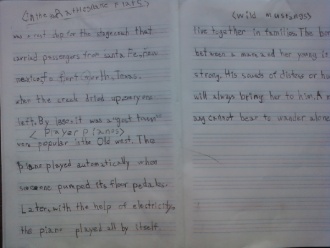 was a rest stop for the stagecoach that
carried passengers from Santa Fe, New
Mexico to first North, Texas.
when the creek dried up everyone
left. By 1908 it was a ghost town
< player pianos>
very popular in the Old west. This
piano played automatically when
someone pumped its floor pedals.
Later, with the help of electricity,
the piano played all by itself.
(wild mustangs)
live together in families. The
between a mare and her young is
strong. His sounds of distress or
will always bring her to him. A
cannot bear to wander alone